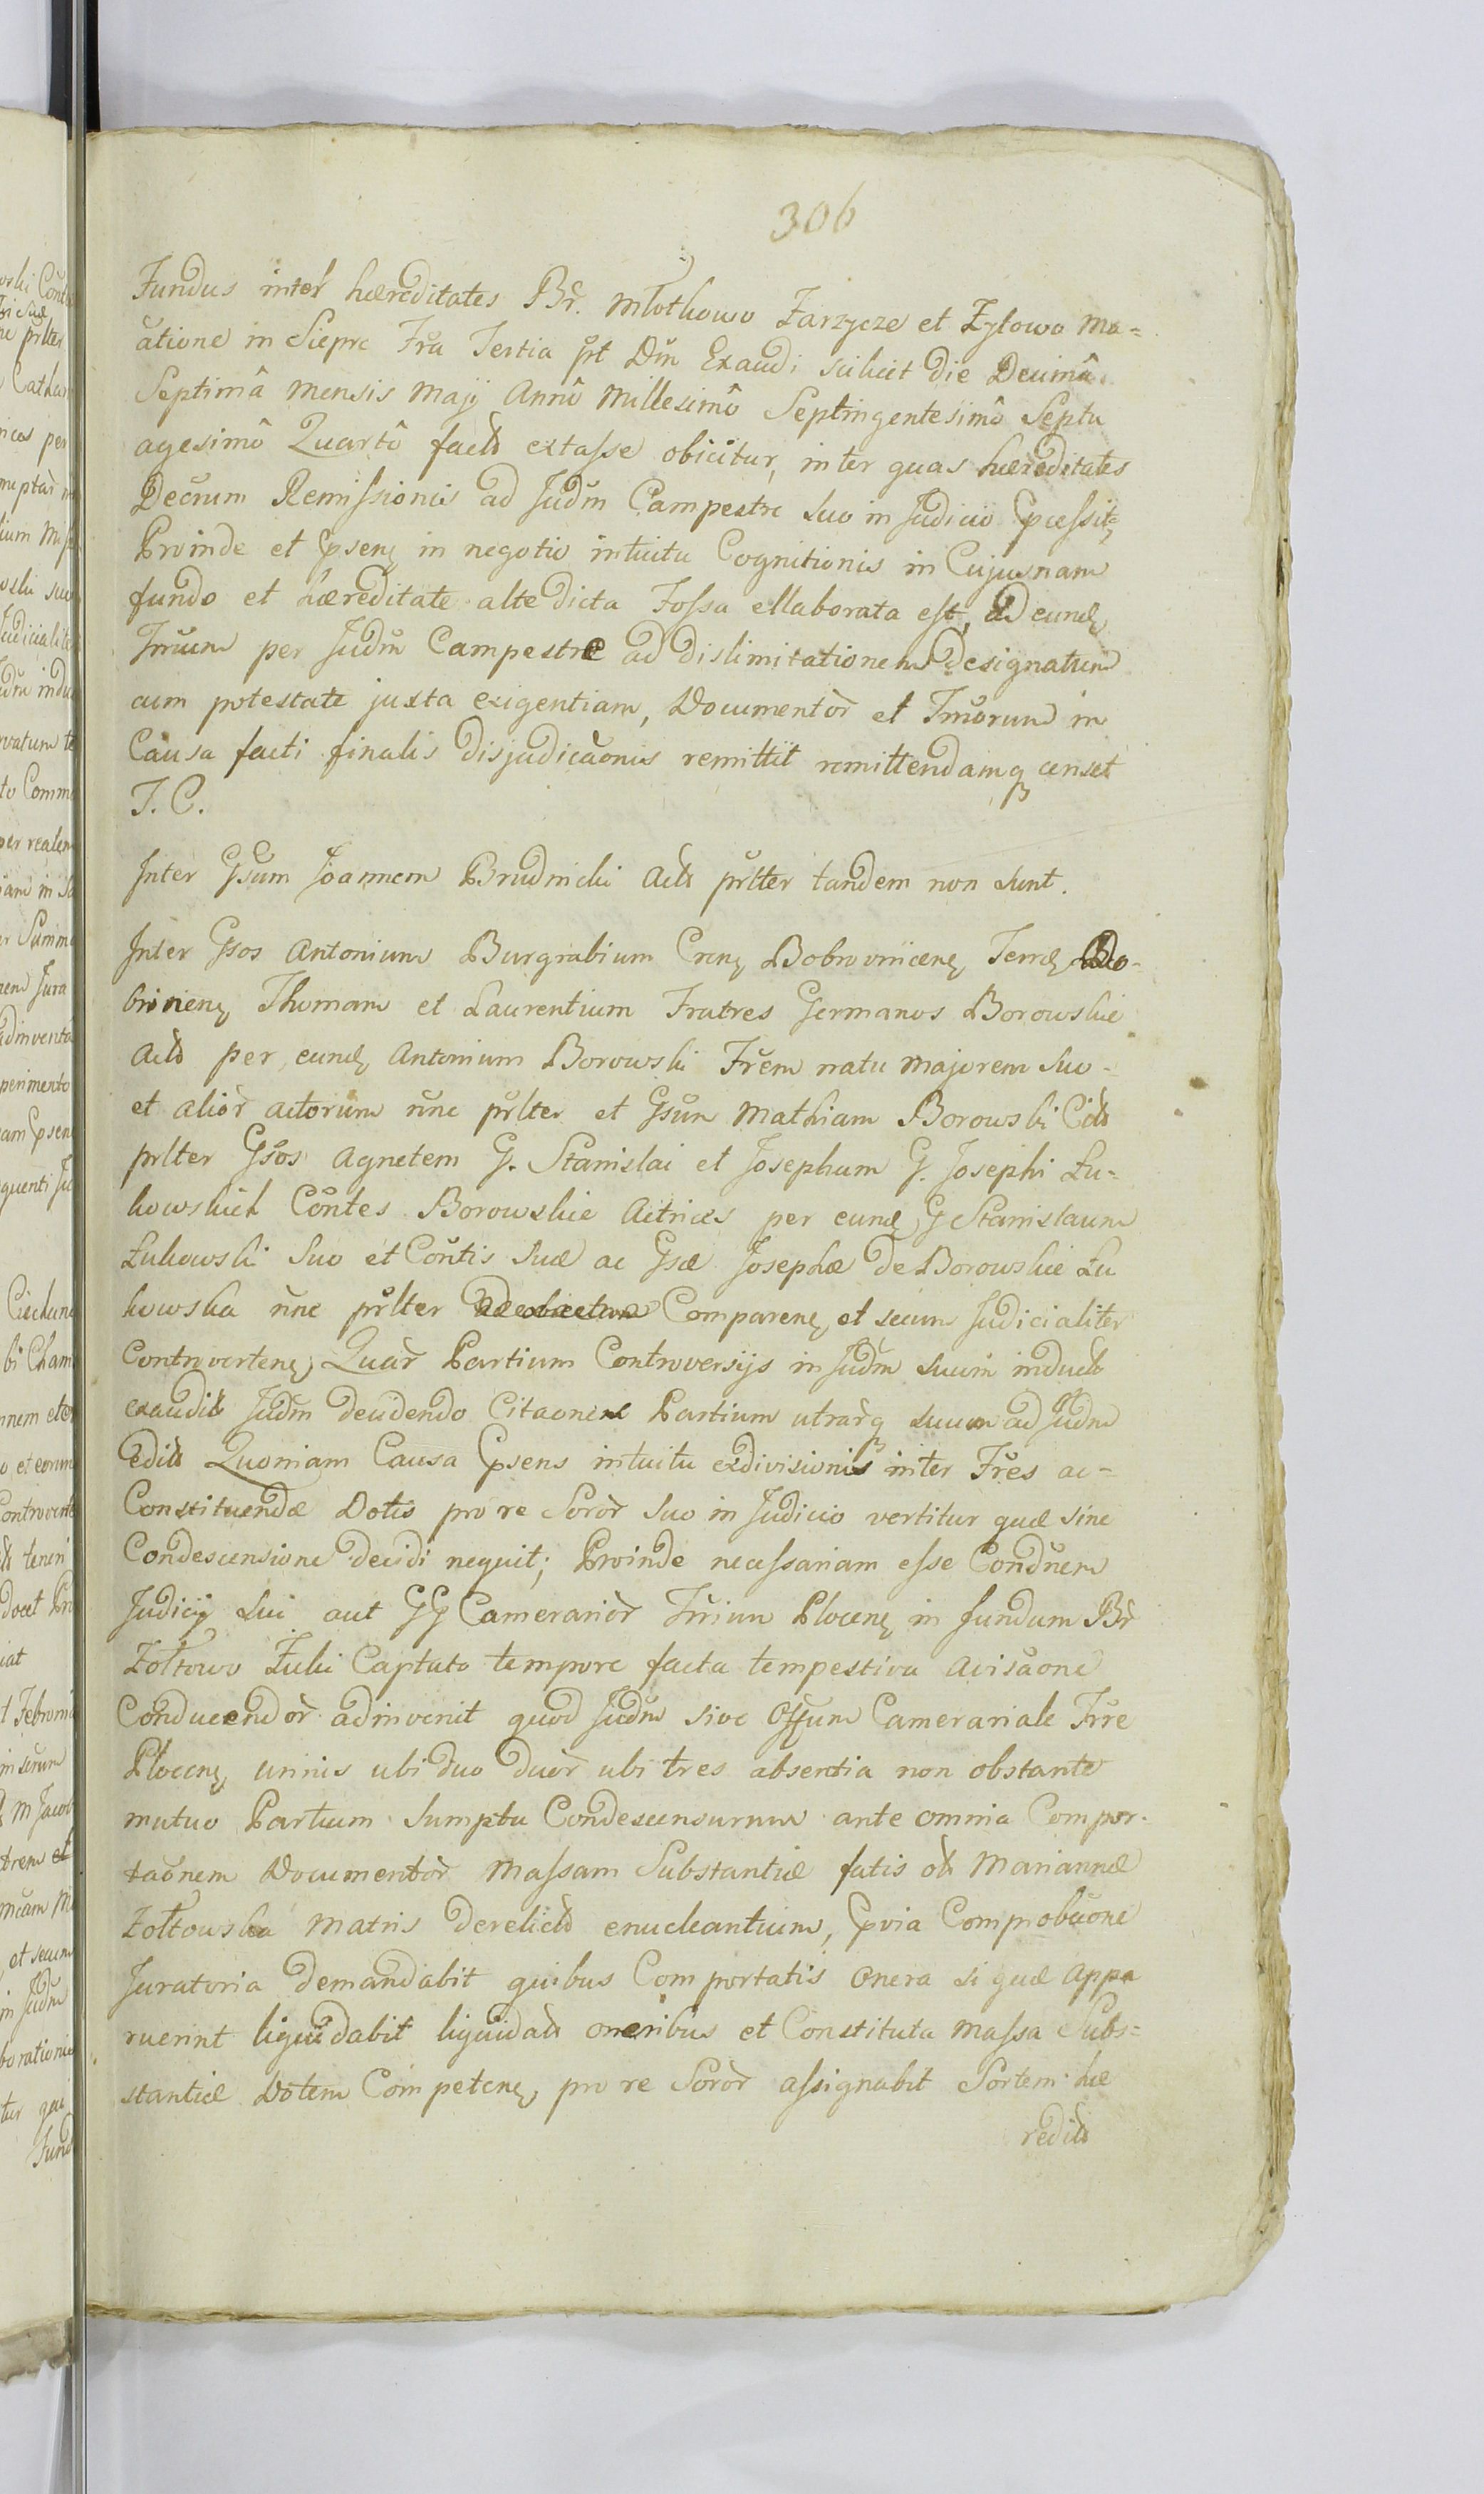 306
Fundus inter hæreditates Br. Młotkowo Zarzycze et Zyłowo Ma=
atione in Sieprc Fra Tertia pt Dm Exaudi scilicet die Decimâ
Septimâ Mensis Maji Annô Millesimô Septingentesimô Septu
agesimô Quartô facta extasse obicitur, inter quas hæreditates
Decrum Remissionis ad Judm Campestre suo in Judicio
Proinde et in negotio intuitu Cognitionis in Cujusnam
fundo et hæreditate alte dicta Fossa ellaborata est, ad eund
Tmum per Judm Campestre ad dislimitationem designatum
cum potestate juxta exigentiam, Documentor et Tmorum in
Causa facti finalis disjudicaonis remittit remittendamq censet
T. C.
Inter Gsum Joannem Brudnicki Acts prlter tandem non sunt.
Inter Gsos Antonium Burgrabium Bobrownicen Terræ Do=
brinen Thomam et Laurentium Fratres Germanos Borowskie
Acts per eund Antonium Borowski Frem natu majorem suo=
et alior actorum nnc prlter et Gsum Mathiam Borowski Cits
prlter Gsos Agnetem G. Stanislai et Josepham G. Josephi Łu=
kowskich Contes Borowskie Actrices per eund G Stanislaum
Łukowski suo et Contis suæ ac Gsæ Josephæ de Borowskie Łu
kowska nnc prlter Comparen et secum Judicialiter
Controverten Quar Partium Controversijs in Judm suum induct
exaudit Judm decidendo Citaonem Partium utrarq suum ad Judm
edits Quoniam Causa intuitu exdivisionis inter Fres ac=
Constituendæ Dotis pro re Soror suo in Judicio vertitur quæ sine
Condescensione decidi nequit; Proinde necessariam esse Condnem
Judicij sui aut GG Camerarior Trium Plocen in fundum Br
Zołtowo Żuki Captato tempore facta tempestiva avisaone
Conducendor adinvenit quod Judm sive Offum Camerariale Trre
Plocen unius ubi duo duor ubi tres absentia non obstante
mutuo Partium sumptu Condescensurum ante omnia Compor=
taonem Documentor Massam Substantiæ fatis ol Mariannæ
Zołtowska Matris derelict enucleantium, Comprobaone
Juratoria demandabit quibus Comportatis Onera si quæ Appa
ruerint liquidabit liquidats oneribus et Constituta Massa Subs=
stantiæ Dotem Competen, pro re Soror assignabit Sortem hæ
redit